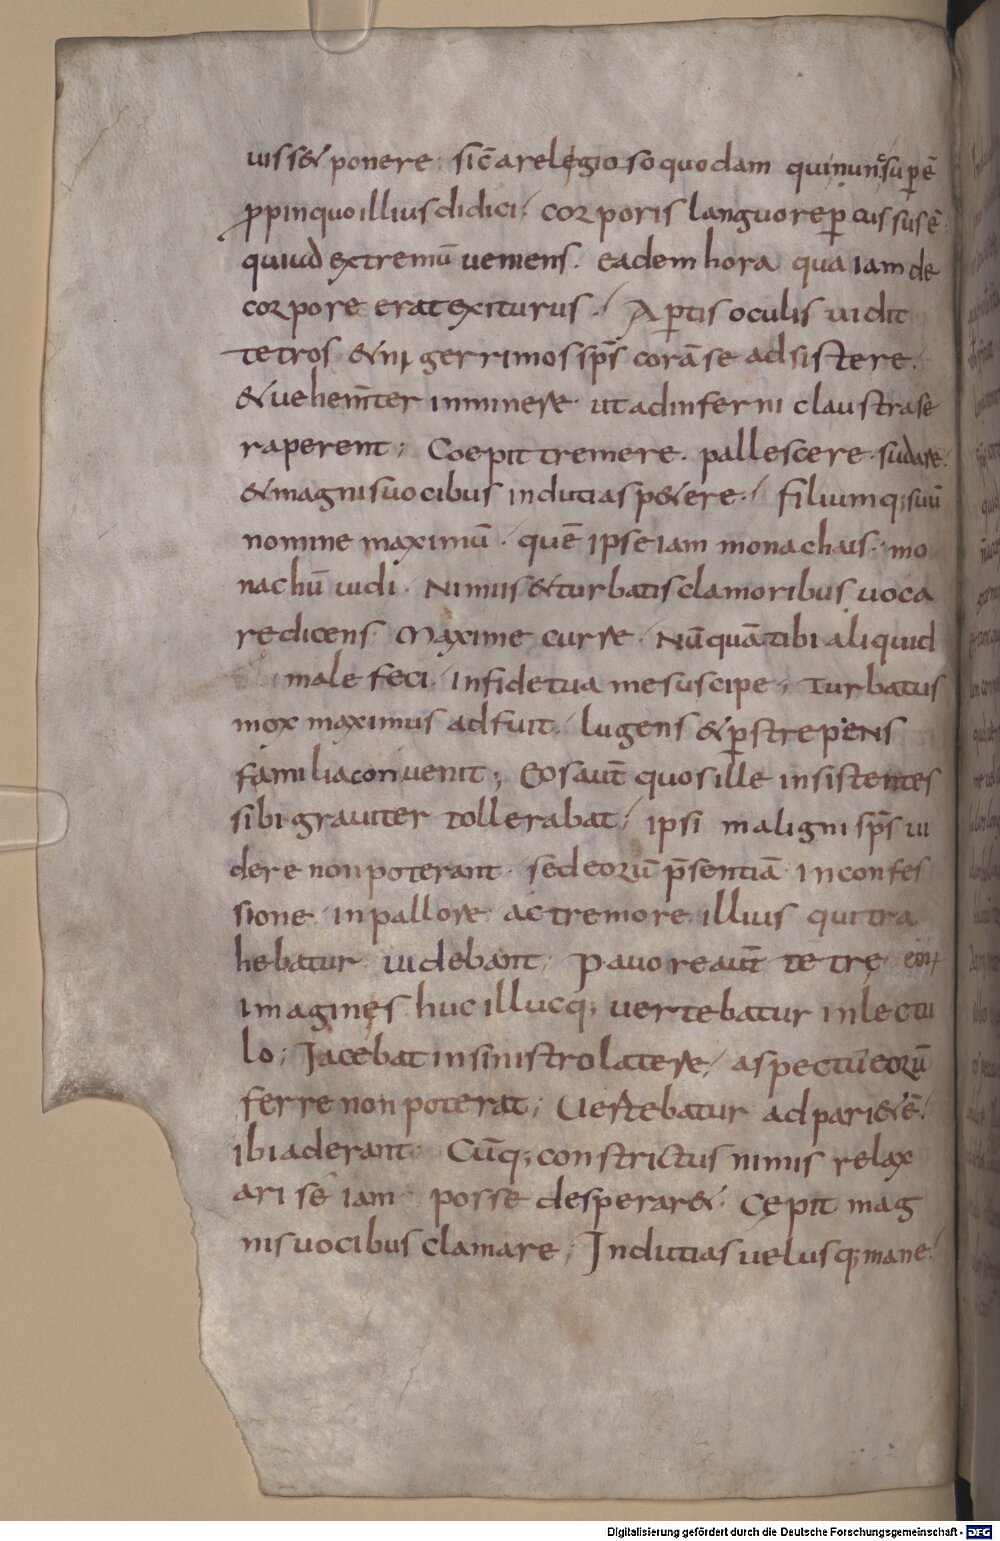 uisset ponere; sic̄ a relegioso quodam qui nunc supē ē
ꝓpinquo illius didici; corporis languore ꝑcussus ē
quiud extremū ueniens. eadem hora qua iam de
corpore erat exiturus. Aꝑtis oculis uidit
tetros & nigerrimos sp̄s corā se adsistere.
& uehem̄ter imminere. ut ad inferni claustra se
raperent; Coepit tremere. pallescere. sudare.
& magnis uocibus inducias p&ere. filiumq; suū
nomine maximū. quē ipse iam monachus. mo
nachū uidi. Nimiis & turbatis clamoribus uoca
re dicens. Maxime curre. Nūquā tibi aliquid
male feci. In fide tua me suscipe; Turbatus
mox maximus adfuit. lugens & ꝑstrepens
familia conuenit; Eos aut̄ quos ille insistentes
sibi grauiter tollerabat. ipsi maligni sp̄s ui
dere non poterant. sed eorū p̄sentiā in confes
sione. in pallore. ac tremore illius qui tra
hebatur uidebant; Pauore aut̄ tetrę eoꝝ
imagines huc illucq; uertebatur in lectu
lo; Iacebat in sinistro latere. aspectū eorū
ferre non poterat; Uertebatur ad pari&ē.
ibi aderant. Cūq; constrictus nimis relax
ari se iam posse desperar&. Cępit mag
nis uocibus clamare; Inducias uel usq; mane.
Digitalisierung gefördert durch die Deutsche Forschungsgemeinschaft - DFG